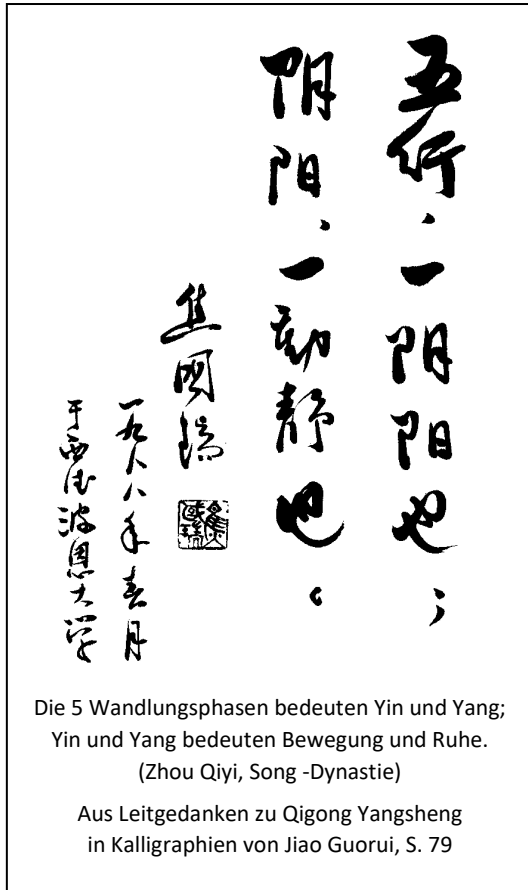 五行、一阴阳也；
阴阳、一動静也。
焦國瑞
一九八八年春月
于西德波恩大学
Die 5 Wandlungsphasen bedeuten Yin und Yang;
Yin und Yang bedeuten Bewegung und Ruhe.
(Zhou Qiyi, Song -Dynastie)
Aus Leitgedanken zu Qigong Yangsheng
in Kalligraphien von Jiao Guorui, S. 79